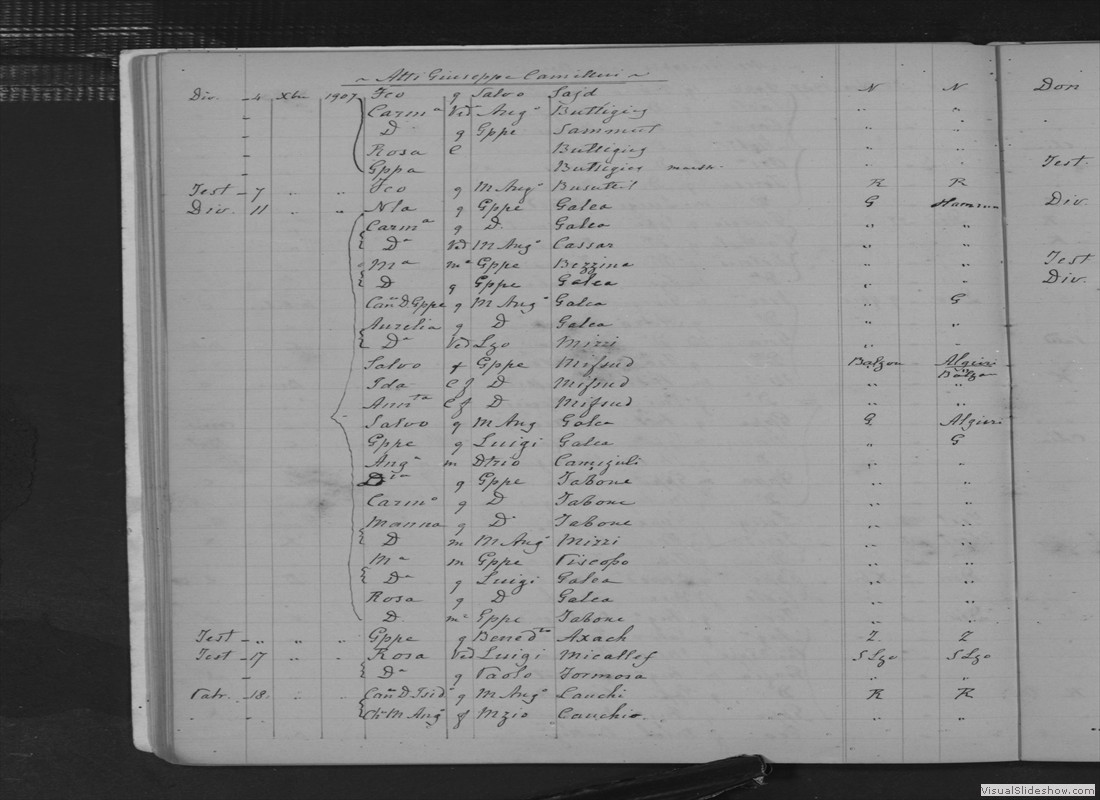 ~ Atti Giuseppe Camilleri ~
Div. - 4 Xbre 1907 Fco g Salvo Sajd N N
- Carmª Ved Angº Buttigieg " "
- D g Gppe Sammut " "
- Rosa C Buttigieg " "
- Gppa Buttigieg " "
Test - 7 " " Fco g M Angº Busuttil R R
Div. 11 " " Nla g Gppe Galea G Hamrun
Carmª g D. Galea " "
Dª Ved M Angº Cassar " "
Mª mª Gppe Bezzina " "
D g Gppe Galea " "
Canº D Gppe g M Angº Galea " G
Aurelia g D Galea " "
Dª Ved Lzo Mizzi " "
Salvo f Gppe Mifsud Balzan Algieri
Balza
Ida C f D Mifsud " "
C f D Mifsud " "
Salvo g M Ang Galea G Algieri
Gppe g Luigi Galea " G
Angª m Dtrio " "
Dª g Gppe Tabone " "
Carmº g D Tabone " "
Manna g D Tabone " "
D m M Angº Mizzi " "
Mª m Gppe Piscopo " "
Dª g Luigi Galea " "
Rosa g D Galea " "
D. mª Gppe Tabone " "
Test - " " " Gppe g Benedtº Axach Z Z
Test - 17 " " Rosa Ved Luigi Micallef S Lzo S Lzo
Dª g Paolo Formosa " "
Patr. - 18 " " Canº D Isidº g M Angº Cauchi R R
- Chº M Angº f Mzio Cauchi " "
Don
Test.
Div.
Test
Div.
VisualSlideshow.com